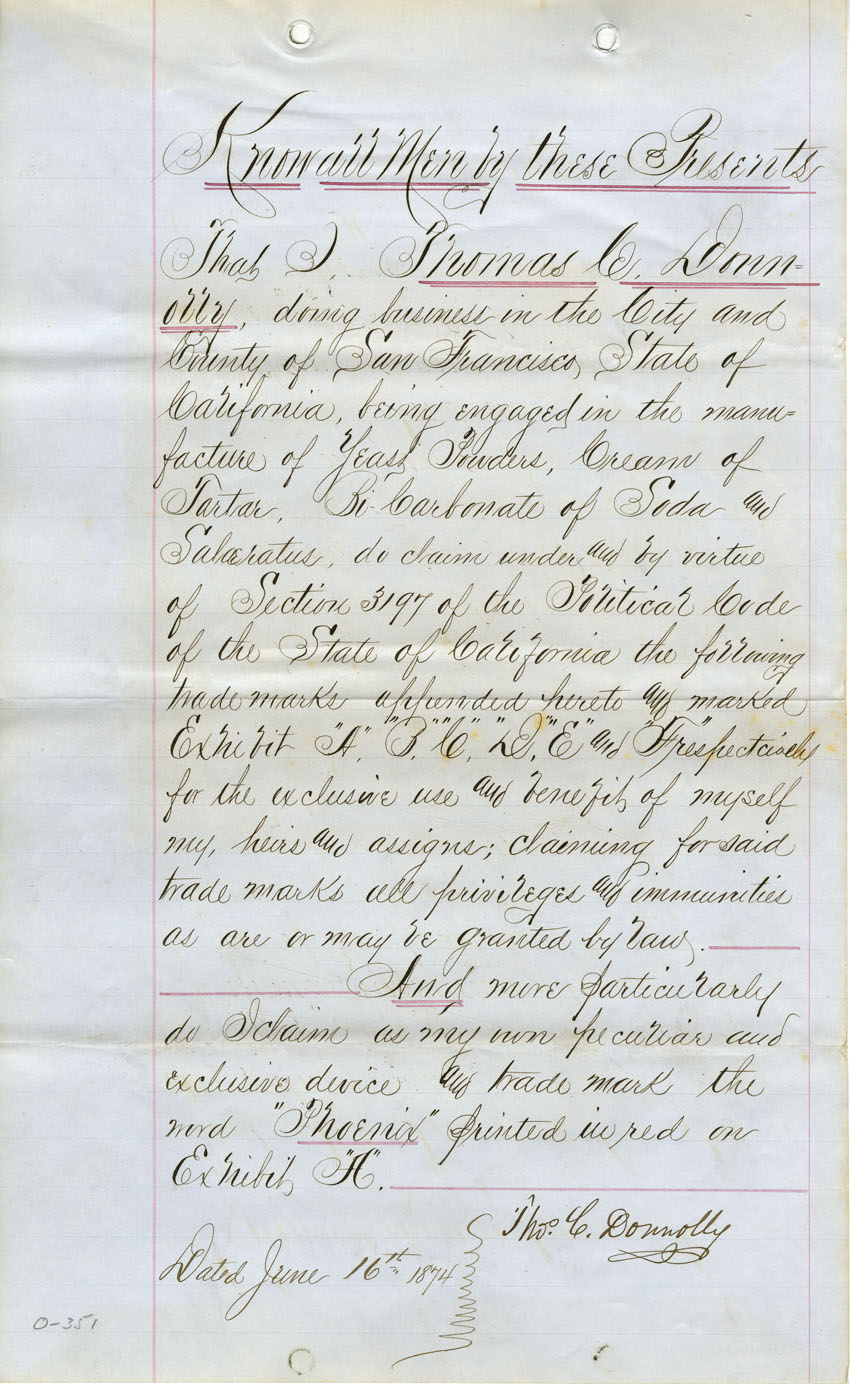 Know all Men by these Presents
That I, Thomas C. Donn=
olly, doing business in the City and
County of San Francisco, State of
California, being engaged in the manu=
facture of Yeast Powders, Cream of
Tartar, Bi-Carbonate of Soda and
Salæratus, do claim under and by virtue
of Section 3197 of the Political Code
of the State of California the following
trade marks appended hereto and marked
Exhibit "A", "B", "C", "D", "E" and "F" respectively
for the exclusive use and benefit of myself
my, heirs and assigns; claiming for said
trade marks all privileges and immunities
as are or may be granted by law.
And more particularly
do I claim as my own peculiar and
exclusive device and trade mark the
word "Phoenix" printed in red on
Exhibit "A".
Thos. C. Donnolly
Dated June 16th 1874
O-351